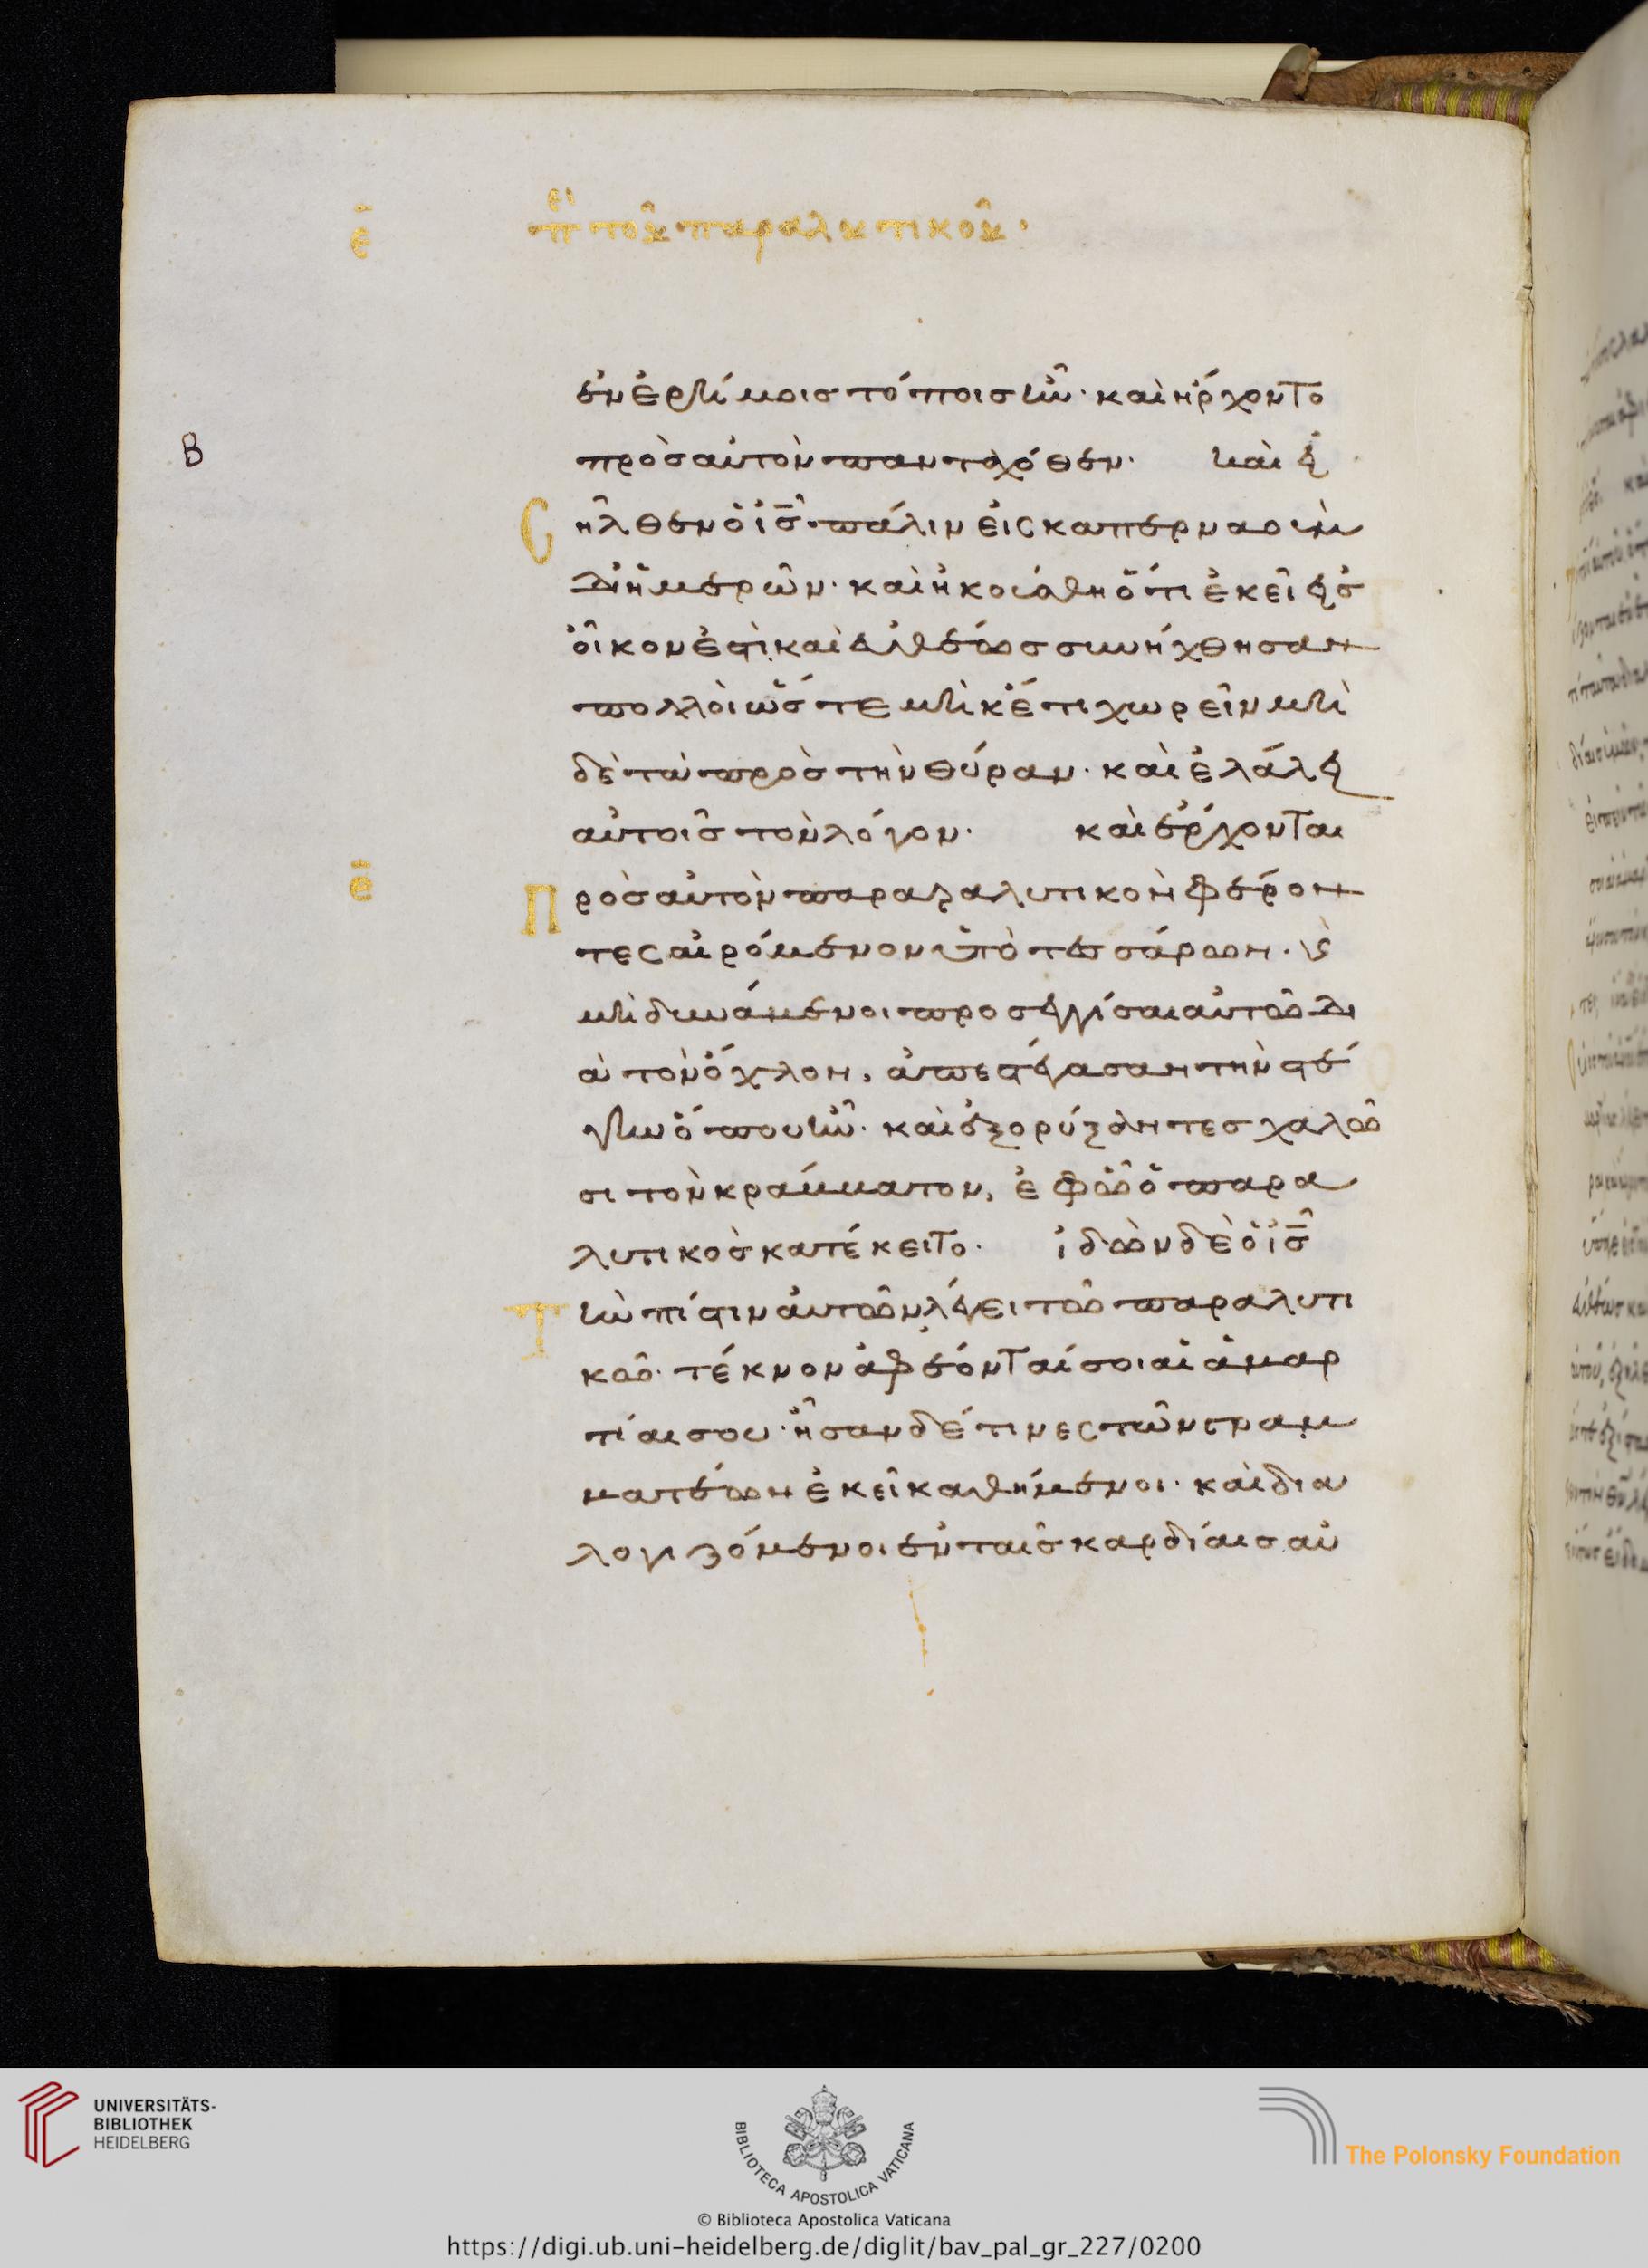 ε̄ περὶ τοῦ παραλυτικοῦ·
ἐν ἐρήμοις τόποις ἦν· καὶ ἤρχοντο
B πρὸς αὐτὸν πανταχόθεν· καὶ εἰ
σῆλθεν ὁ ις̄ πάλιν εἰς καπερναοὺμ
δι ἡμερῶν· καὶ ἠκούσθη ὅτι ἐκεῖ εἰς
οἶκον ἐστὶ· καὶ εὐθέως συνήχθησαν
πολλοὶ ὥστε μηκέτι χωρεῖν μη
δὲ τὰ πρὸς τὴν θύραν· καὶ ἐλάλει
αὐτοῖς τὸν λόγον· καὶ ἔρχονται
ε̄ Πρὸς αὐτὸν παραλυτικὸν φέρον
τες αἰρόμενον ὑπὸ τεσσάρων· ϗ
μὴ δυνάμενοι προσεγγίσαι αὐτῶ δι
ὰ τὸν ὄχλον, ἀπεστέγασαν τὴν στέ
γην ὅπου ἦν· καὶ ἐξορύξαντες χαλῶ
σι τὸν κράμματον, ἐφ ὧ ὁ παρα
λυτικὸς κατέκειτο· ἰδὼν δὲ ὁ ις̄
Τὴν πίστιν αὐτῶν λέγει τῶ παραλυτι
κῶ· τέκνον ἀφέονταί σοι αἱ ἁμαρ
τίαι σου· ἦσαν δέ τινες τῶν γραμ
ματέων ἐκεῖ καθήμενοι· καὶ δια
λογιζόμενοι ἐν ταῖς καρδίαις αὐ
UNIVERSITÄTS-
BIBLIOTHEK
HEIDELBERG
BIBLIOTECA APOSTOLICA VATICANA
The Polonsky Foundation
© Biblioteca Apostolica Vaticana
https://digi.ub.uni-heidelberg.de/diglit/bav_pal_gr_227/0200